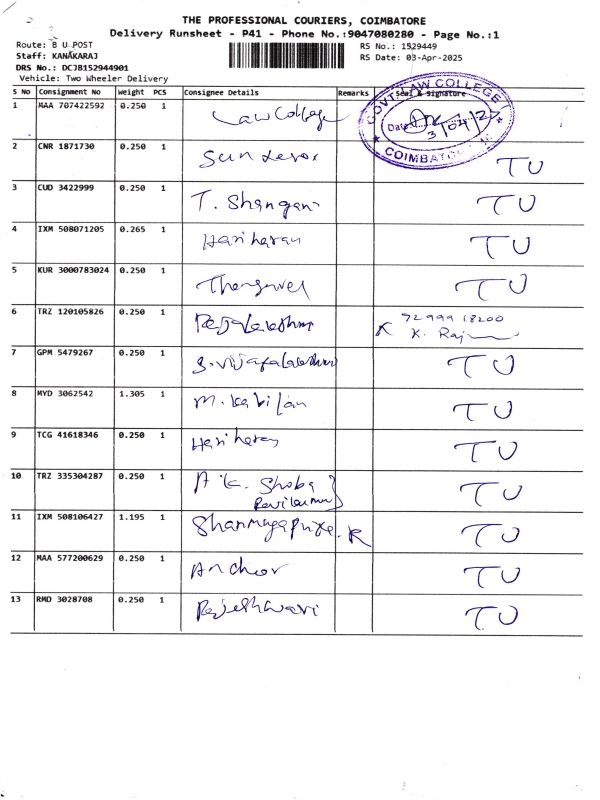 THE PROFESSIONAL COURIERS, COIMBATORE
Delivery Runsheet - P41 - Phone No.:9047080280 - Page No.:1
Route: B U POST
RS No.: 1529449
Staff: KANAKARAJ
RS Date: 03-Apr-2025
DRS No.: DCJB152944901
Vehicle: Two Wheeler Delivery
S No Consignment No Weight PCS Consignee Details Remarks Seal & Signature
GOVT LAW COLLEGE
Date:
COIMBATORE
1 MAA 707422592 0.250 1 Law College
2 CNR 1871730 0.250 1 TU
3 CUD 3422999 0.250 1 T. TU
4 IXM 508071205 0.265 1 Hariharan TU
5 KUR 3000783024 0.250 1 Thangavel TU
6 TRZ 120105826 0.250 1 Rajalakshmi 72999 18200
K. Raj
7 GPM 5479267 0.250 1 S. Vijayalakshmi TU
8 MYD 3062542 1.305 1 M. Kabilan TU
9 TCG 41618346 0.250 1 Hariharan TU
10 TRZ 335304287 0.250 1 A K. Shoba TU
Ravikumar
11 IXM 508106427 1.195 1 TU
12 MAA 577200629 0.250 1 Anchor TU
13 RMD 3028708 0.250 1 Rajeshwari TU